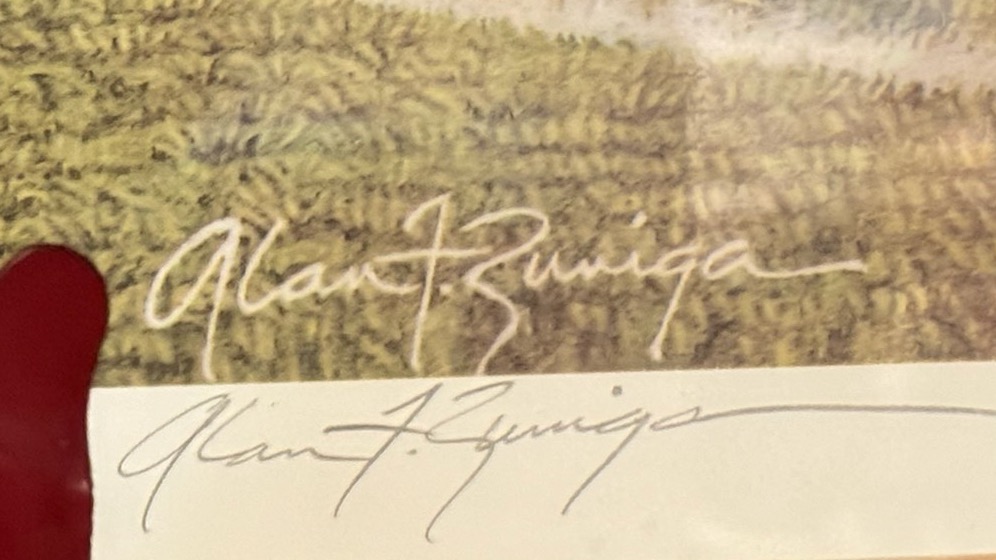 Alan F. Zuniga
Alan F. Zuniga